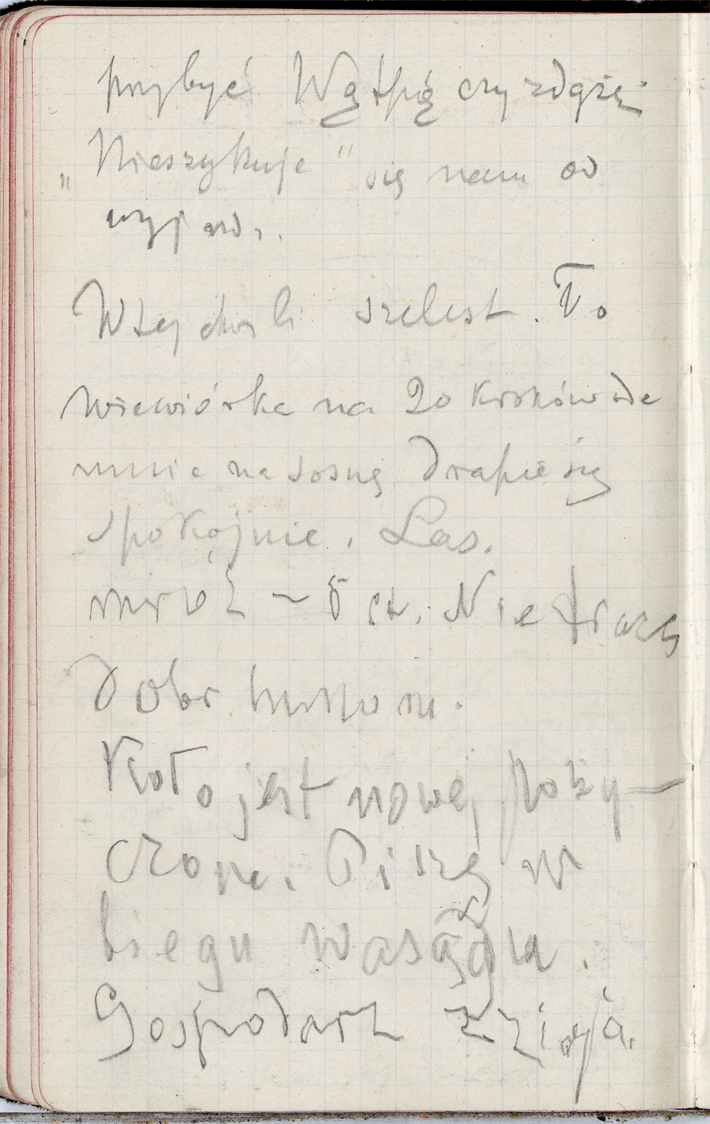 przybyć Wątpię czy zdążę.
„Nieszykuje" się nam od
wyjazd..
Wtej chwili szelest. To
wiewiórka na 20 kroków ode
mnie na sosnę drapie się
spokojnie. Las.
mróz – 5 st. Nie tracę
dobr. humoru.
Koło jest nowe, poży–
czone. Piszę w
biegu wasągu.
Gospodarz